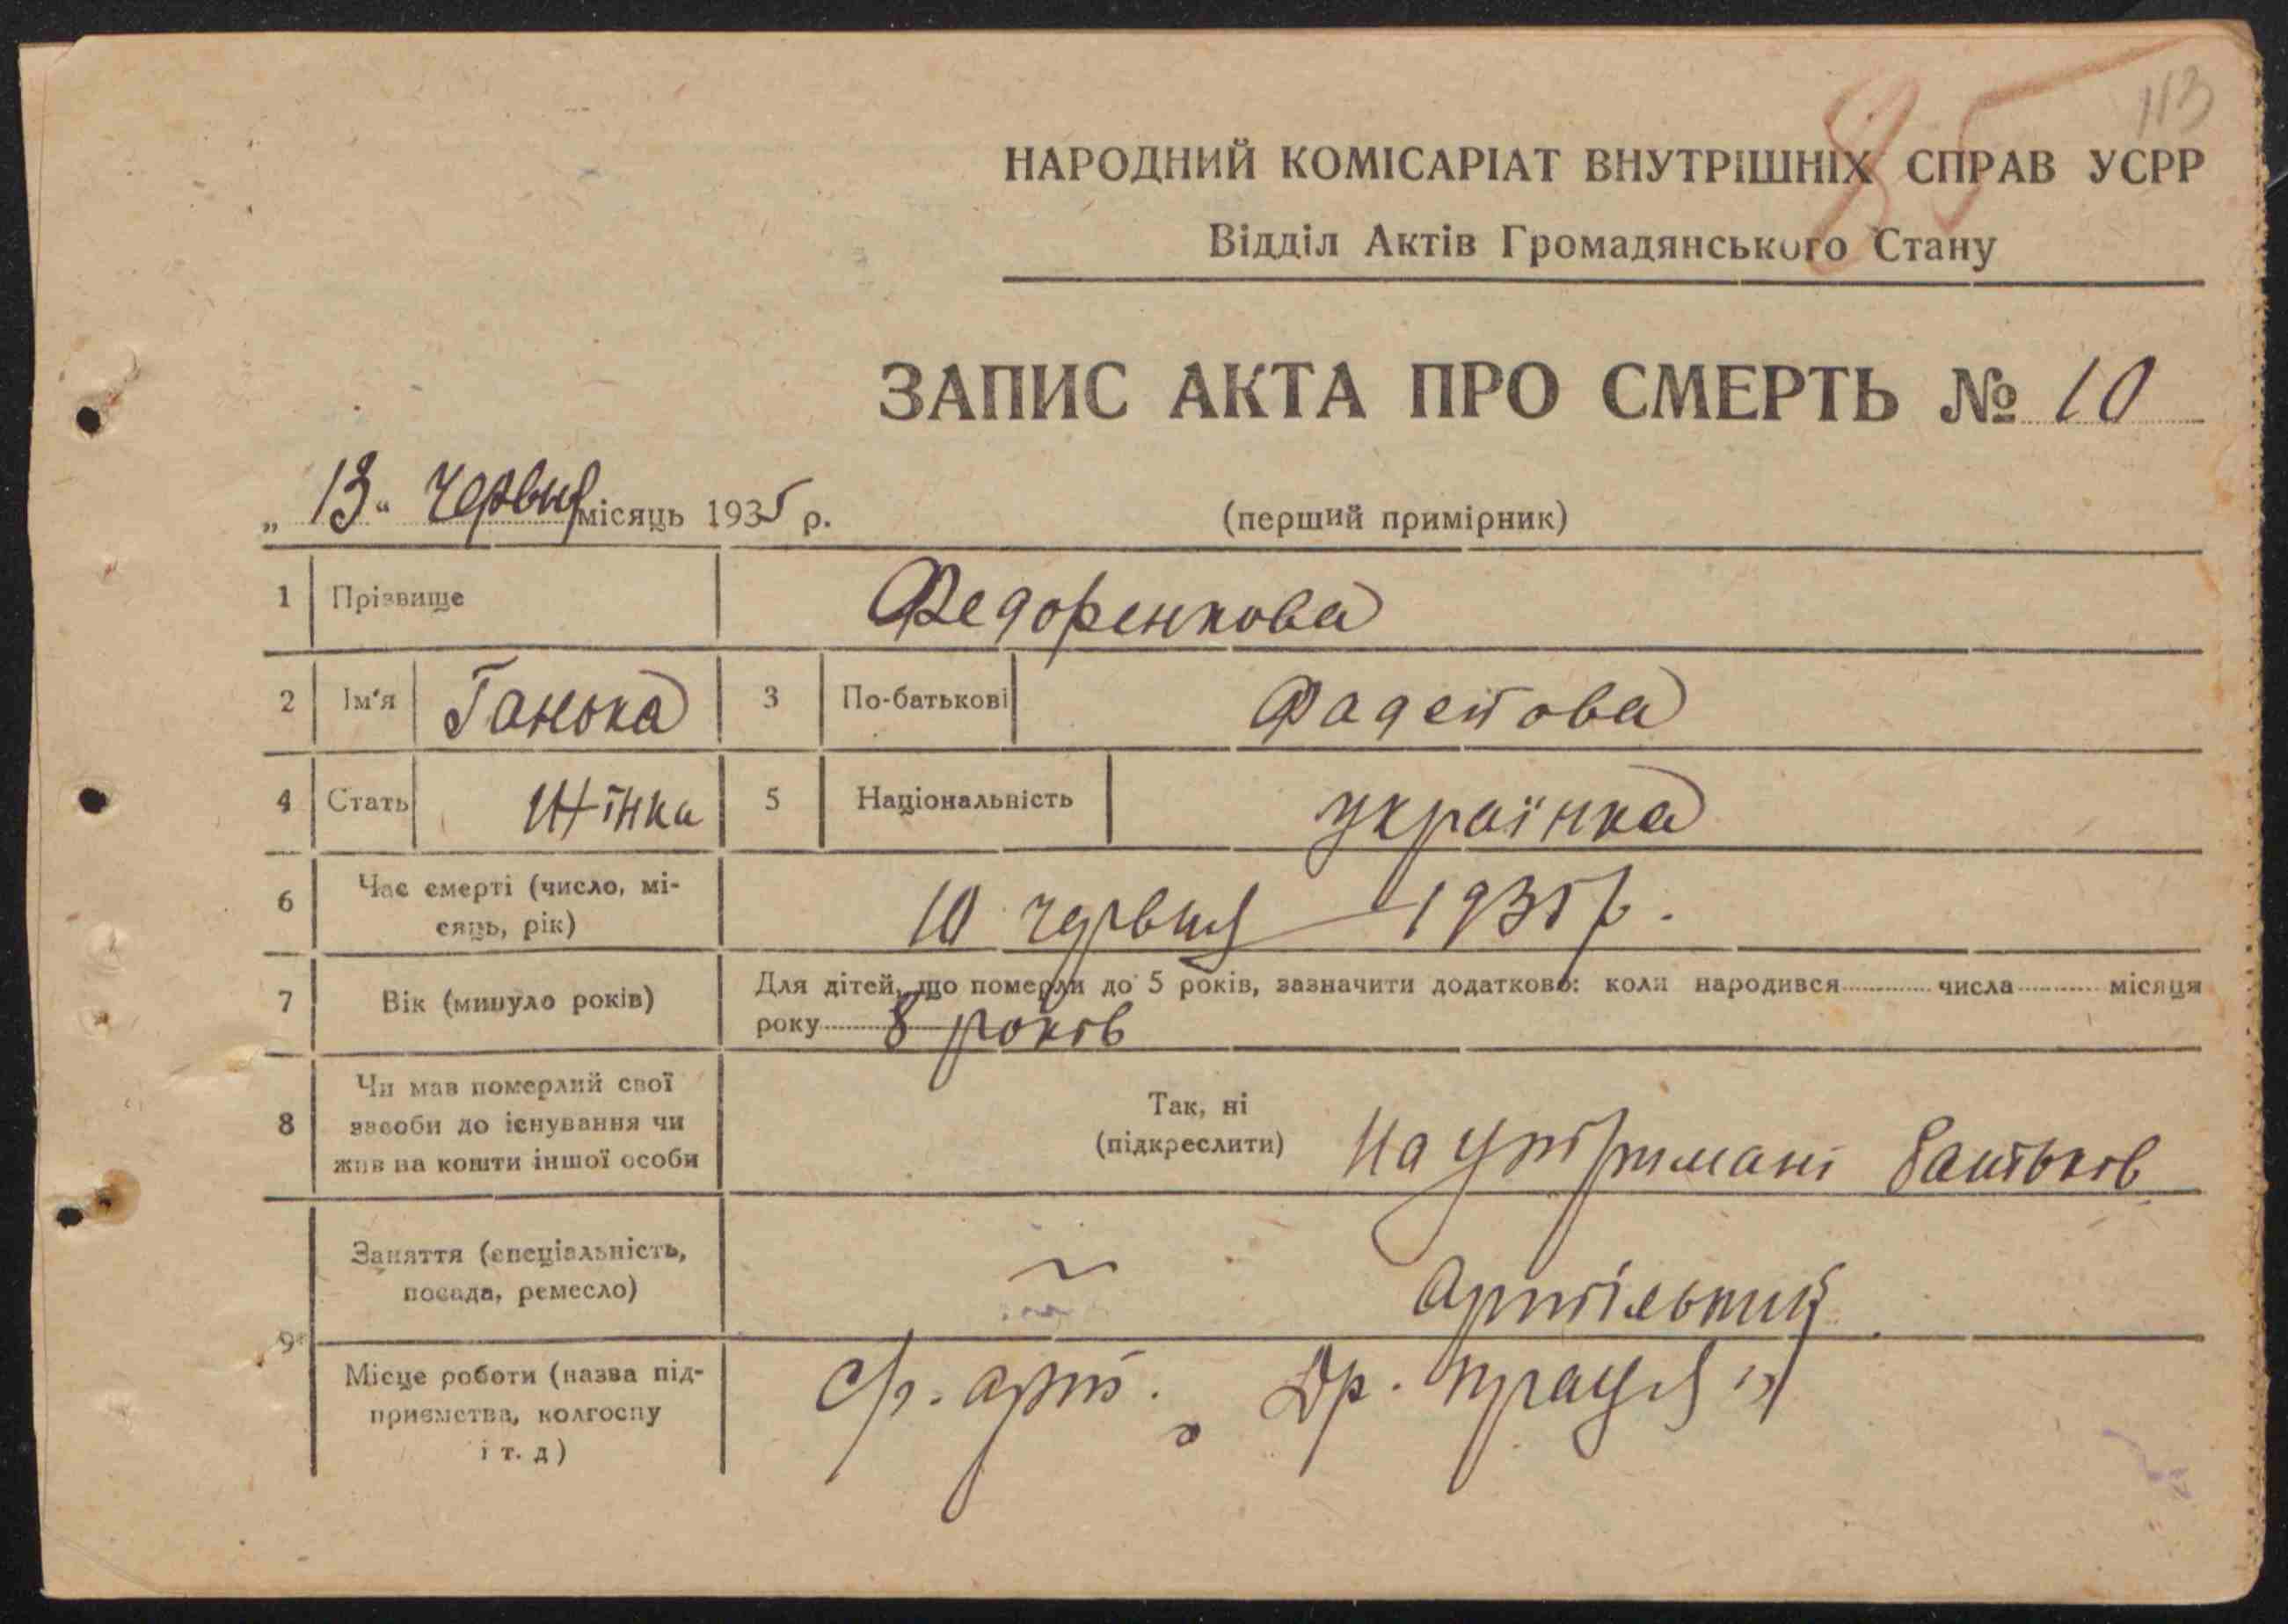 113
85
НАРОДНИЙ КОМІСАРІАТ ВНУТРІШНІХ СПРАВ УСРР
Відділ Актів Громадянського Стану
ЗАПИС АКТА ПРО СМЕРТЬ № 10
„ 13 “ червня місяць 1935 р.
(перший примірник)
1 Прізвище Федоренкова
2 Ім'я Ганька 3 По-батькові Фадейова
4 Стать жінка 5 Національність українка
6 Час смерті (число, мі-
сяць, рік) 10 червня 1935 р.
7 Вік (минуло років) Для дітей, що померли до 5 років, зазначити додатково: коли народився числа місяця
року 8 років
8 Чи мав померлий свої
засоби до існування чи
жив на кошти іншої особи
Так, ні
(підкреслити)
На утримані батьків
9 Заняття (спеціальність,
посада, ремесло)
Артільний
Місце роботи (назва під-
приємства, колгоспу
і т. д)
с/г. арт. „Др. праця"